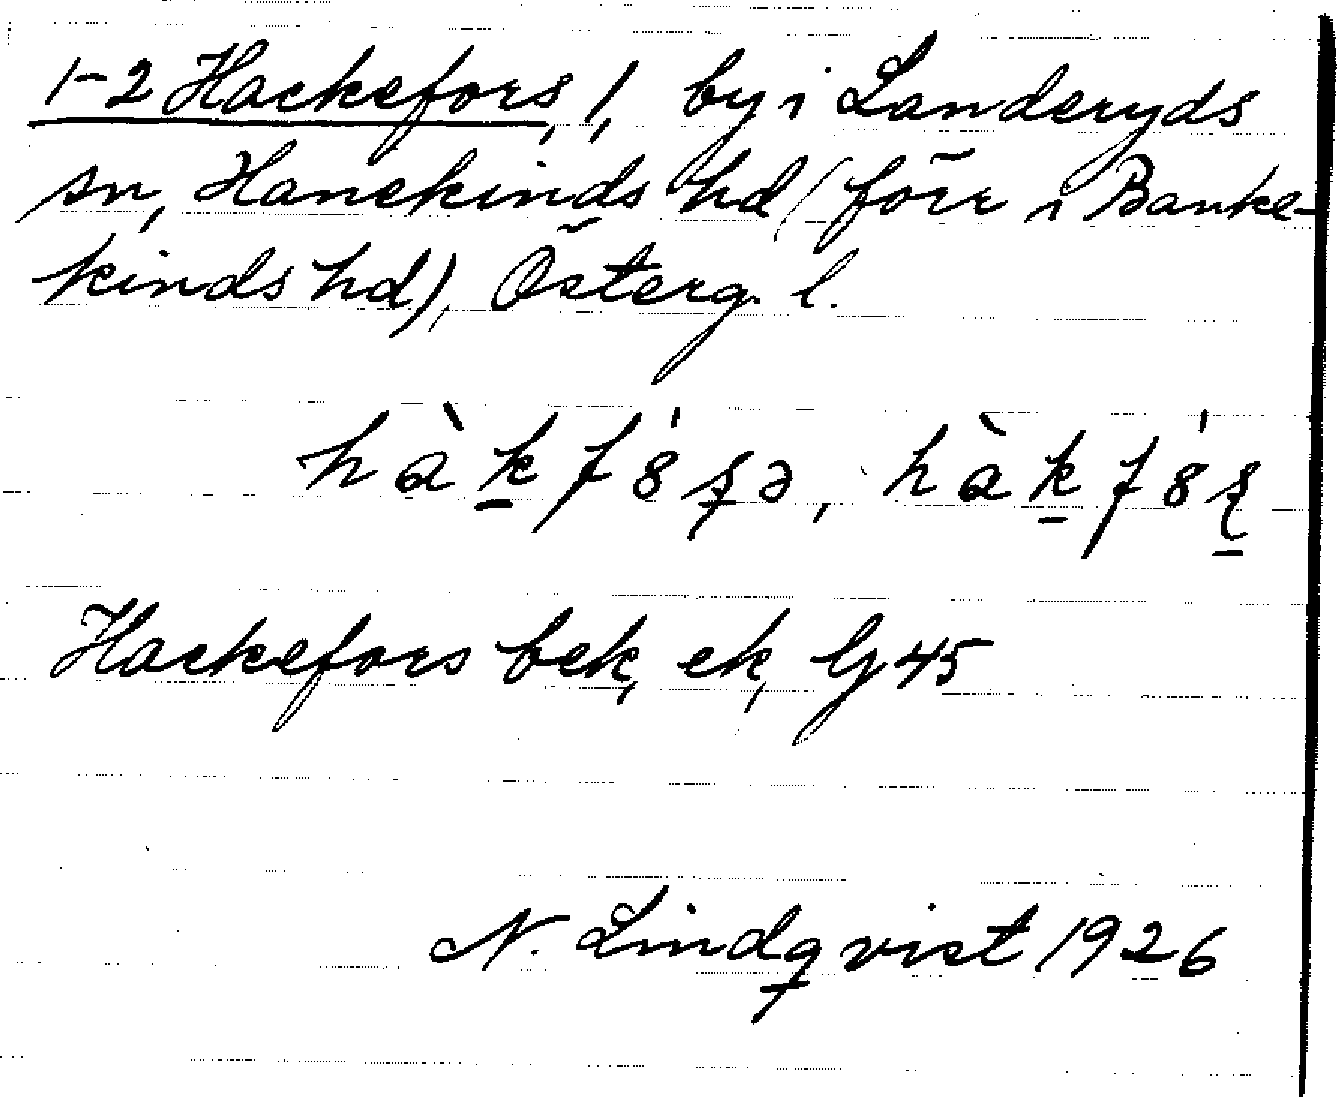 1-2 Hackefors, 1, by i Landeryds
sn, Hanekinds hd (förr i Banke-
kinds hd), Österg. l.
hàk̠fȣ́ʂə, hàk̠fȣ́ʂ̠
Hackefors bek, ek, Gj 45
N. Lindqvist 1926